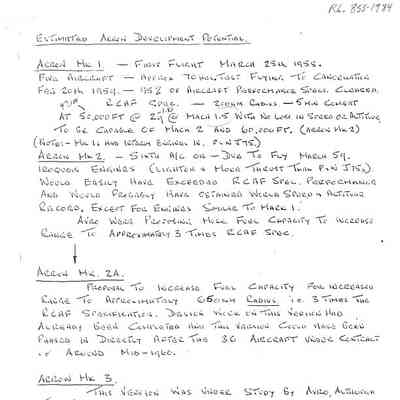 RL. 855-1984
ESTIMATED ARROW DEVELOPMENT POTENTIAL.
ARROW MK 1 — FIRST FLIGHT MARCH 25th 1958.
FIVE AIRCRAFT — APPROX 70 HRS. TEST FLYING TO CANCELLATION
FEB 20th 1959. — 95% OF AIRCRAFT PERFORMANCE SPEC. CLEARED.
RCAF SPEC. — 200NM RADIUS — 5 MIN COMBAT
AT 50,000 FT @ 2g @ MACH 1.5 WITH NO LOSS IN SPEED OR ALTITUDE
TO BE CAPABLE OF MACH 2 AND 60,000 FT. (ARROW MK 2)
(NOTE:- MK 1. HAD INTERIM ENGINES IN. P & W J75)
ARROW MK. 2. — SIXTH A/C ON — DUE TO FLY MARCH 59.
IROQUOIS ENGINES (LIGHTER & MORE THRUST THAN P & W J75s).
WOULD EASILY HAVE EXCEEDED RCAF SPEC. PERFORMANCE
AND WOULD PROBABLY HAVE OBTAINED WORLD SPEED & ALTITUDE
RECORD, EXCEPT FOR ENGINES SIMILAR TO MARK 1.
AVRO WERE PROPOSING MORE FUEL CAPACITY TO INCREASE
RANGE TO APPROXIMATELY 3 TIMES RCAF SPEC.
ARROW MK. 2A.
PROPOSAL TO INCREASE FUEL CAPACITY FOR INCREASED
RANGE TO APPROXIMATELY 650NM RADIUS i.e. 3 TIMES THE
RCAF SPECIFICATION. DESIGN WORK ON THIS VERSION HAD
ALREADY BEEN COMPLETED AND THIS VERSION COULD HAVE BEEN
PHASED IN DIRECTLY AFTER THE 36 AIRCRAFT UNDER CONTRACT
AROUND MID-1960.
ARROW MK 3.
THIS VERSION WAS UNDER STUDY BY AVRO, ALTHOUGH